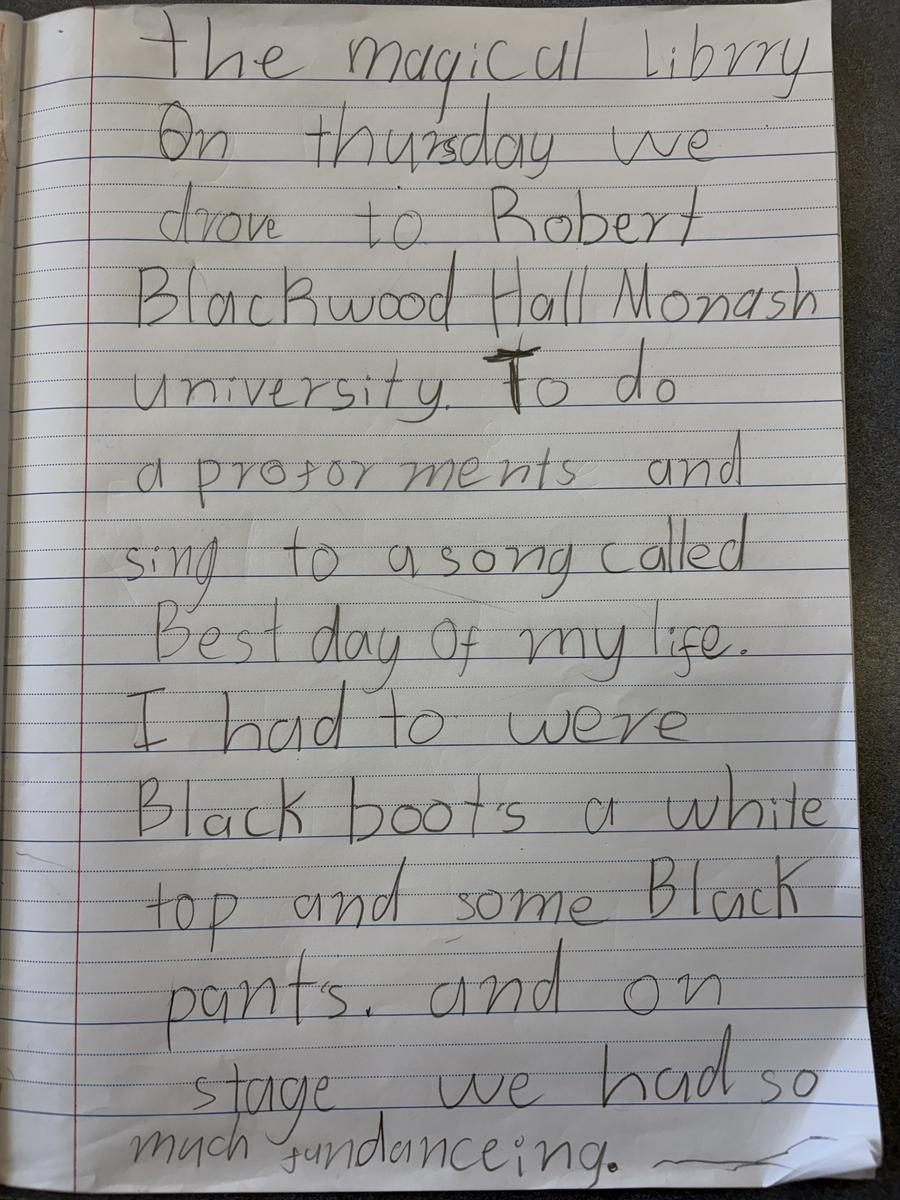 the magical librry
On thursday we
drove to Robert
Blackwood Hall Monash
university. To do
a proformements and
sing to a song called
Best day Of my life.
I had to were
Black boots a white
top and some Black
pants. and on
stage we had so
much fundanceing.